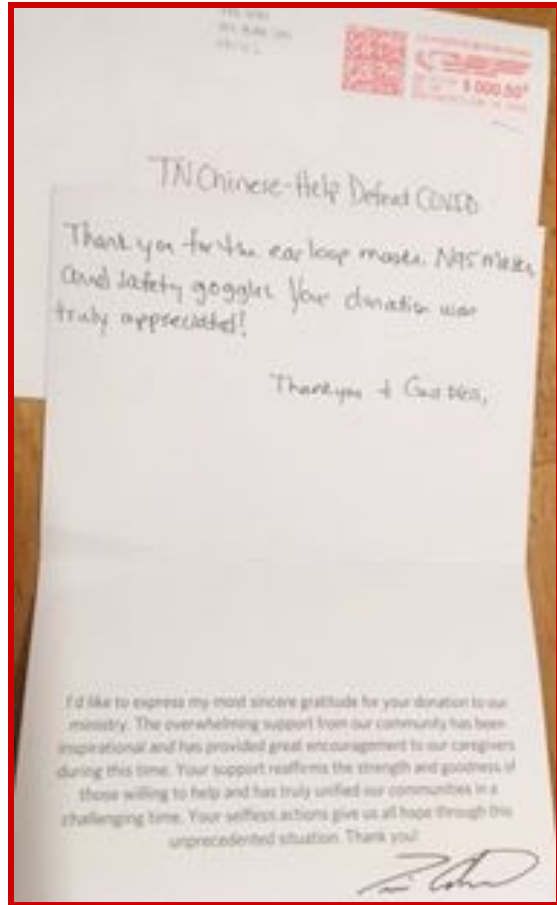 $ 000.50⁰
TN Chinese-Help Defeat COVID
Thank you for the ear loop masks, N95 Masks
and safety goggles. Your donation was
truly appreciated!
Thank you + God bless,
I'd like to express my most sincere gratitude for your donation to our
ministry. The overwhelming support from our community has been
inspirational and has provided great encouragement to our caregivers
during this time. Your support reaffirms the strength and goodness of
those willing to help and has truly unified our communities in a
challenging time. Your selfless actions give us all hope through this
unprecedented situation. Thank you!